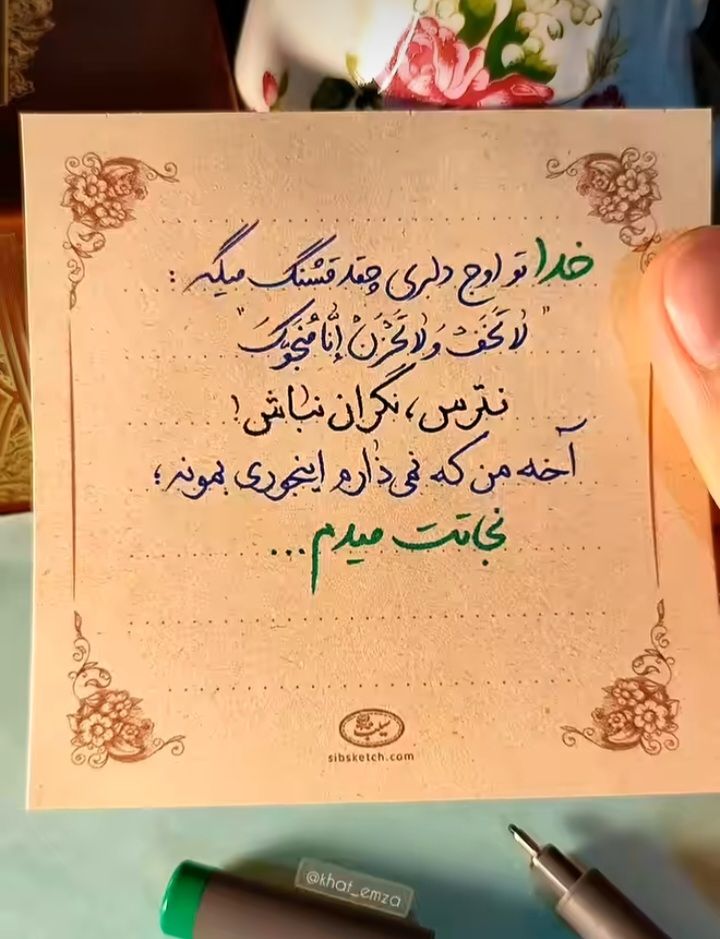 خدا تو اوج دلبری چقد قشنگ میگه :
"لَا تَخَفْ وَلَا تَحْزَنْ إِنَّا مُنَجُّوكَ"
نترس، نگران نباش!
آخه من که نمی‌ذارم اینجوری بمونه؛
نجاتت میدم...
sibsketch.com
@khat_emza